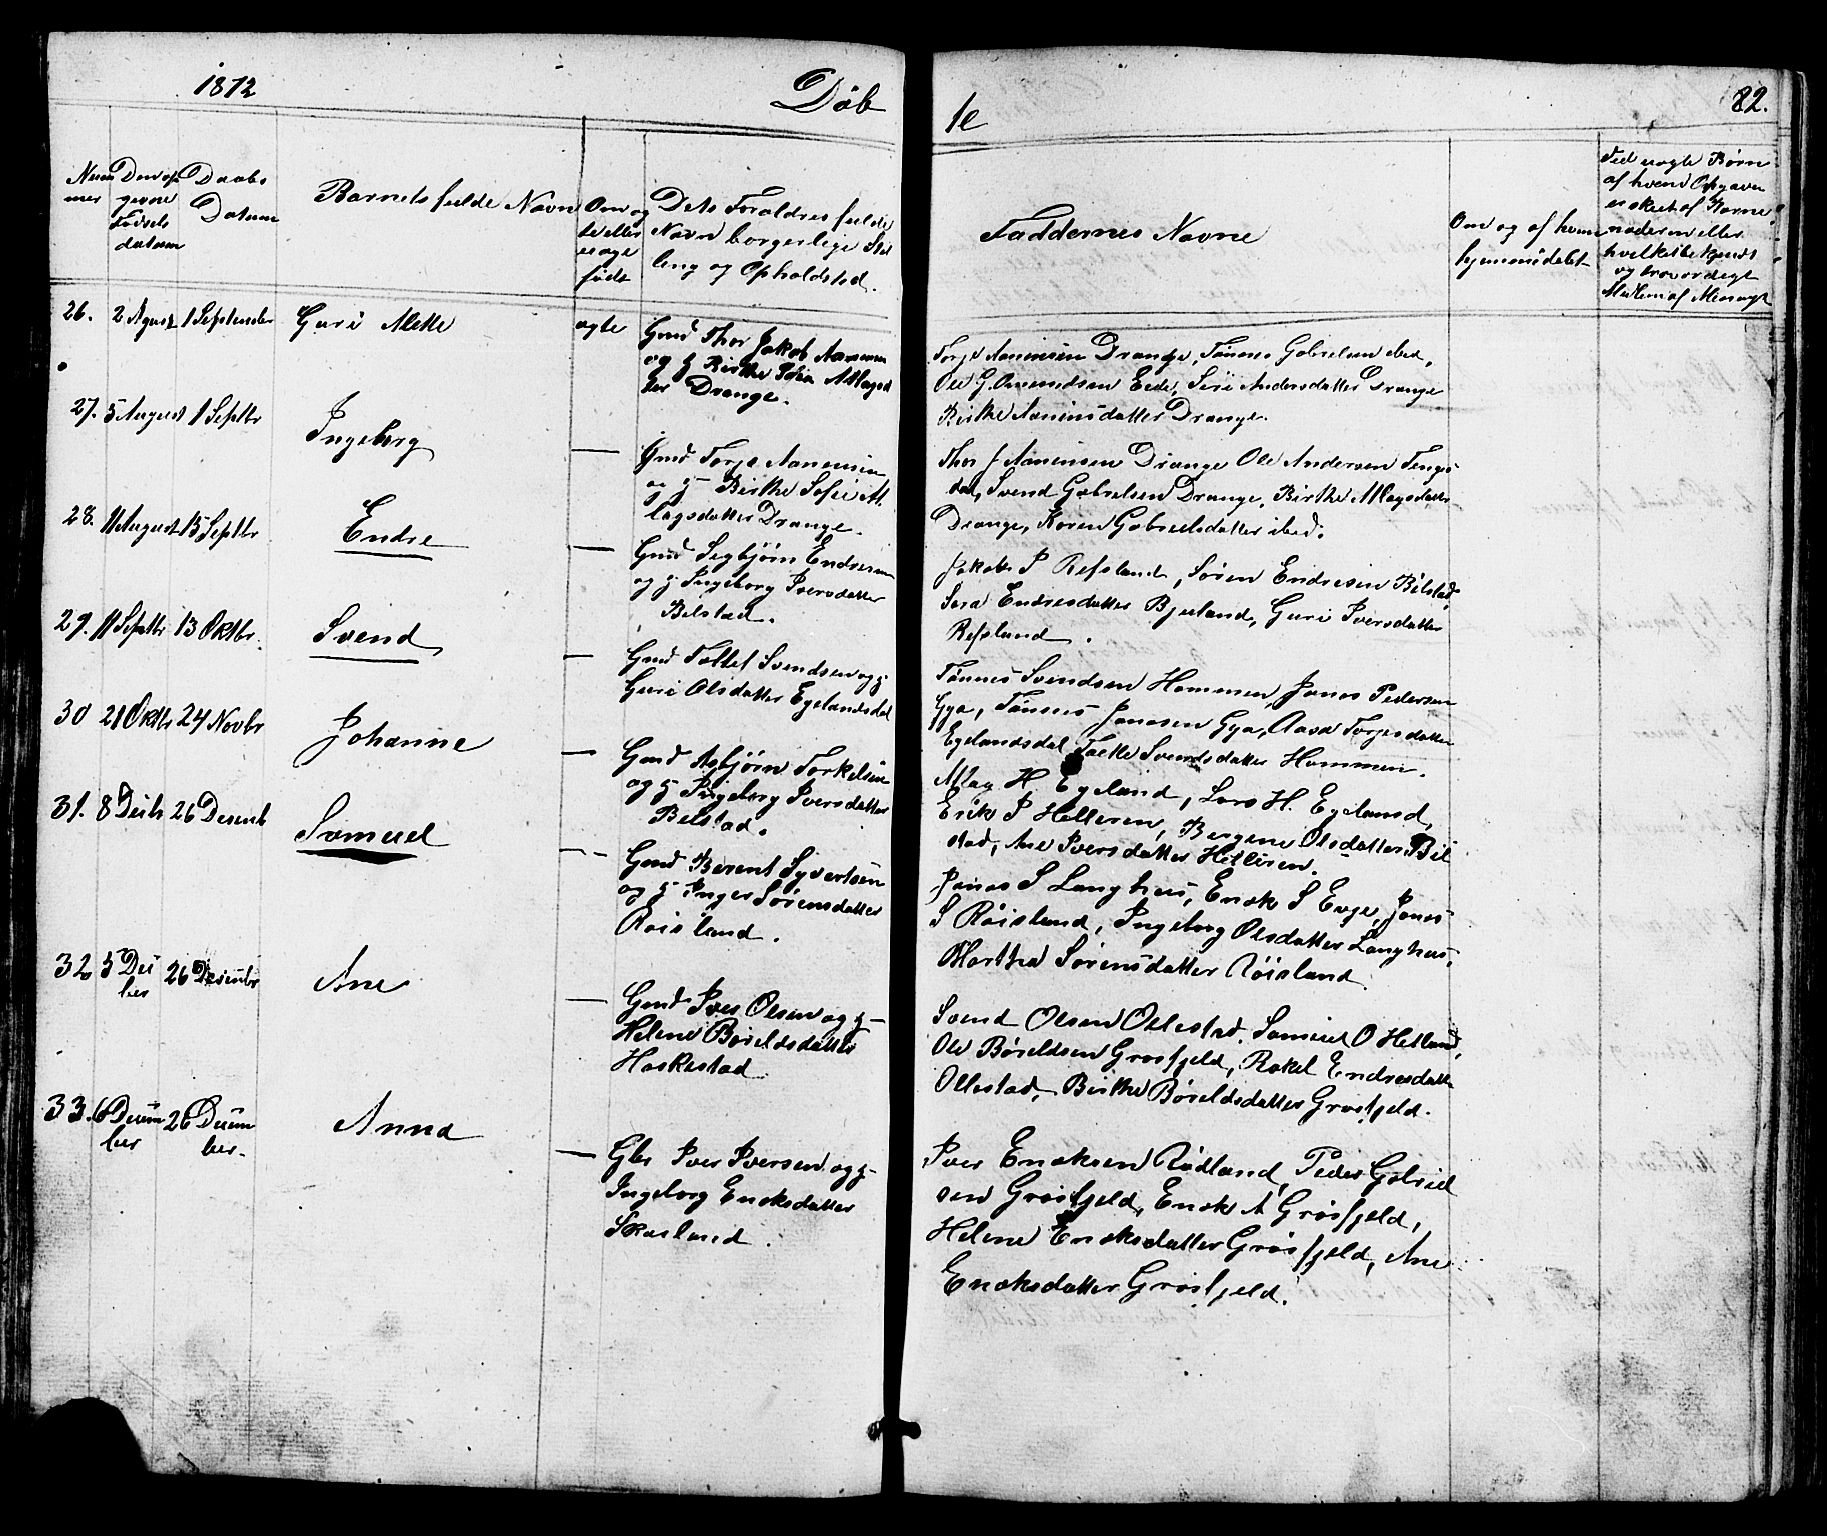 1872
Döb
te
82.
Num Den op Daabs
mer givne Datum
Födsels
datum
Barnets fulde Navn
Om æg
te eller
uægte
født
Dets Foraldres fulde
Navn borgerlige Stil
ling og Opholdsted.
Faddernes Navne
Om og af hvem
hjemmedøbt
Ved uægte Børn
af hvem Opgaven
er skeet af Barne
moderen eller
hvilket bekjendt
og troværdigt
26. 2 Agust 1 September Guri Alette ægte
Gmd Thor Jakob Aanensen
og g Birthe Sofia Atlagsd
ter Drange.
Torje Aanensen Drange, Tønnes Gabrielsen ibid,
Ole G. Omundsen Eide, Siri Andersdatter Drange
Birthe Aanensdatter Drange.
27. 5 August 1 Septbr Ingeborg —
Gmd Torje Aanensen
og g- Birthe Sofie At
lagsdatter Drange.
Thor J Aanensen Drange Ole Andersen Tengs
dal, Svend Gabrielsen Drange, Birthe Atlagsdatter
Drange, Karen Gabrielsdatter ibid.
28. 11 August 15 Septbr Endre —
Gmd Segbjørn Endresen
og g. Ingeborg Iversdatter
Bilstad.
Jakob P Refsland, Søren Endresen Bilstad,
Sara Endresdatter Bjuland, Guri Iversdatter
Refsland.
29. 11 Septbr 13 Oktbr. Svend —
Gmd Tollef Svendsen og g
Guri Olsdatter Egelandsdal
Tønnes Svendsen Hammen, Jonas Pedersen
Gya, Tønnes Jonasen Gya, Aasa Torjesdatter
Egelandsdal Svendsdatter Hammen.
30 21 Oktbr 24 Novbr Johanne —
Gmd Asbjørn Torkelsen
og g Ingeborg Iversdatter
Bilstad.
Atlag H. Egeland, Lars H. Egeland,
Erik P Helleren, Bergene Olsdatter Bil
stad, Ane Iversdatter Helleren.
31. 8 Decbr 26 Desemb Samuel —
Gmd Berent Syvertsen
og g Inger Sørensdatter
Røisland.
Jonas S Langhus, Enok S Eege, Jonas
S Røisland, Ingeborg Olsdatter Langhus,
Martha Sørensdatter Røisland.
32 5 Dec 26 Desembr Ane —
ber
Gmd Iver Olsen og g-
Helene Børildsdatter
Haskestad.
Svend Olsen Ollestad, Samuel O Hetland,
Ole Børildsen Grøsfjeld, Rakel Endresdatter
Ollestad, Birthe Børildsdatter Grøsfjeld.
33. 6 Decem 26 Decem Anna —
ber ber.
Gbr Iver Iversen og g-
Ingeborg Enoksdatter
Skarland.
Iver Enoksen Rødland, Peder Gabriel
sen Grøsfjeld, Enok A Grøsfjeld,
Helene Enoksdatter Grøsfjeld, Ane
Enoksdatter Grøsfjeld.